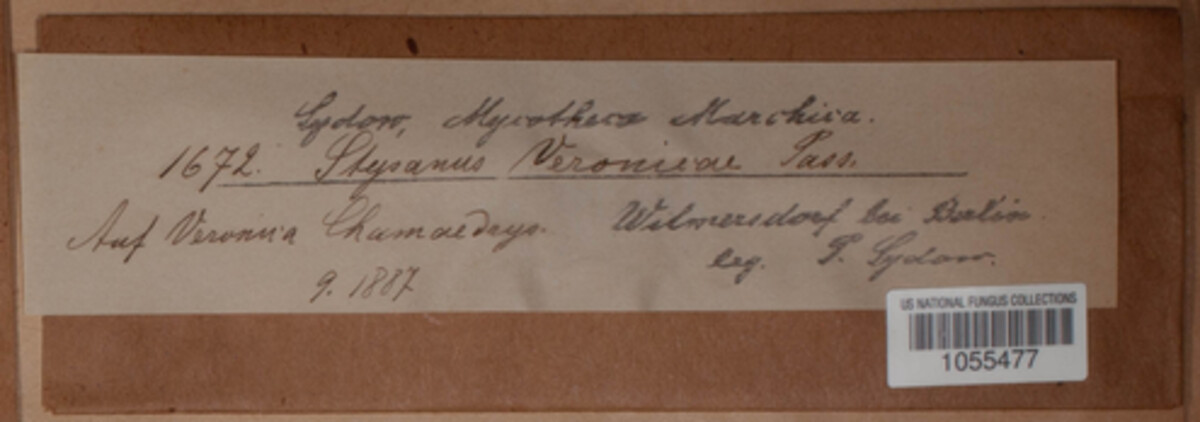 Sydow, Mycotheca Marchica.
1672. Stysanus Veronicae Pass.
Auf Veronica Chamaedrys. Wilmersdorf bei Berlin.
9. 1887 leg. P. Sydow.
US NATIONAL FUNGUS COLLECTIONS
1055477